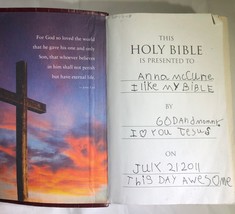 For God so loved the world
that he gave his one and only
Son, that whoever believes
in him shall not perish
but have eternal life.
THIS
HOLY BIBLE
IS PRESENTED TO
Anna McCune
I like MY BIBLE
BY
GODANdmommy
I ♡ you Jesus
ON
JULY 21 2011
This DAY AWESOme